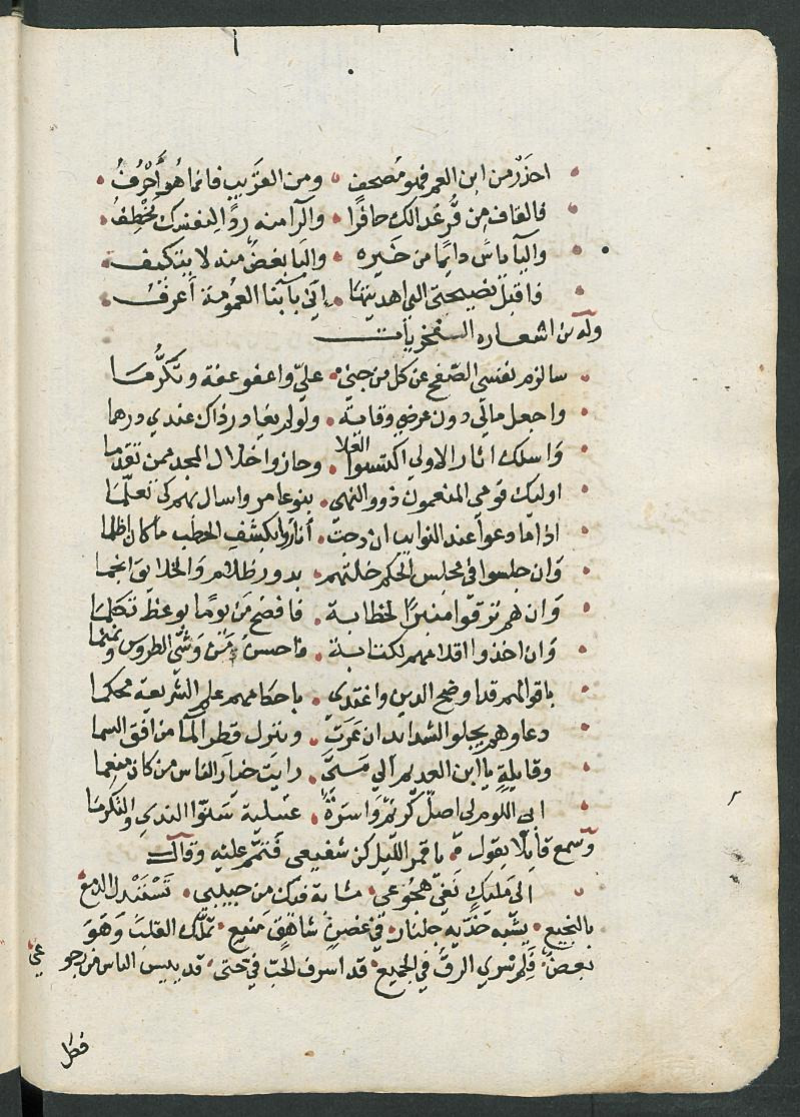 احذر من ابن العم فهو مصحف • ومن القريب فانما هو أحرفُ
فالقاف من قبر غدا لك حافرا • والرا منه ردًا لنفسك تخطفُ
واليا ياس دايما من خيره • والبا بغض منه لا يتكيف
فاقبل نصيحتي التي اهديتها • اني بابنا العمومة أعرفُ
وله من اشعاره الفخريات
سالزم نفسي الصفح عن كل من جنى • علي واعفو عفة وتكرُّما
واجعل مالي دون عرضي وقاية • ولو لم يغادر ذاك عندي درهما
واسلك اثار الاولي اكتسبوا العلا • وحازوا خلال المجد ممن تقدما
اوليك قومي المنعمون ذوو النهى • بنو عامر واسال بهم كي تعلما
اذا ما دعوا عند النوايب ان دجت • أناروا بكشف الخطب ما كان اظلما
وان جلسوا في مجلس الحكم خلتهم • بدور ظلام والخلايق انجما
وان هم ترقوا منبرًا لخطابة • فافصح من يومًا بوعظ تكلما
وان اخذوا اقلامهم لكتابة • فاحسن من وشى الطروس ونمنما
باقوالهم قد اوضح الدين واغتدي • باحكامهم علم الشريعة محكما
دعاوهم يجلو الشدايد ان عرت • وينزل قطر الما من افق السما
وقايلةٍ يا ابن العديم الي متى • رايت خيار الناس من كان منعما
ابى اللوم لي اصل كريم واسرة • عقيلية سنوا الندي والتكرما
وسمع قايلا يقول يا قمر الليل كن شفيعي فتمم عليه وقال
الى مليك نفى هجوعي • مشابه فيك من حبيبي • تستنزل الدمع
بالنجيع • يشبه خديه جلنار • في غصن شاهق منيع • تملك القلب وهو
بعض • فلم سرى الرق في الجميع • قد اسرف الحب في حتى • قد ييس الناس من رجوعي
فطل